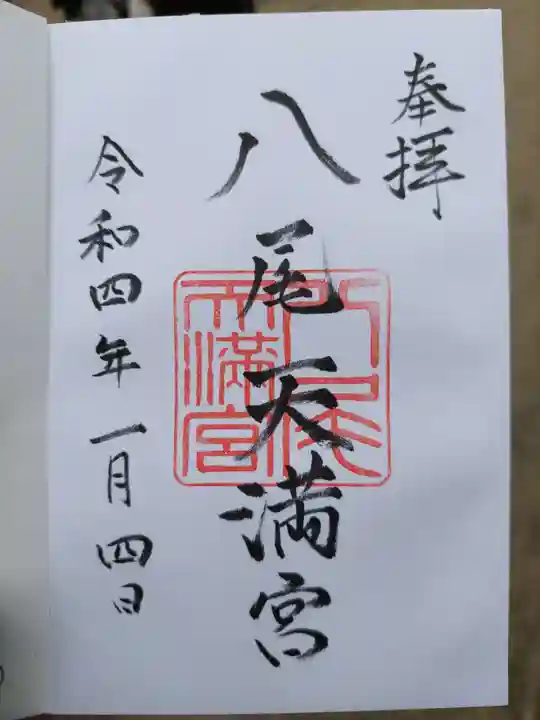 奉拝
八尾天満宮
八尾
天満宮
令和四年一月四日